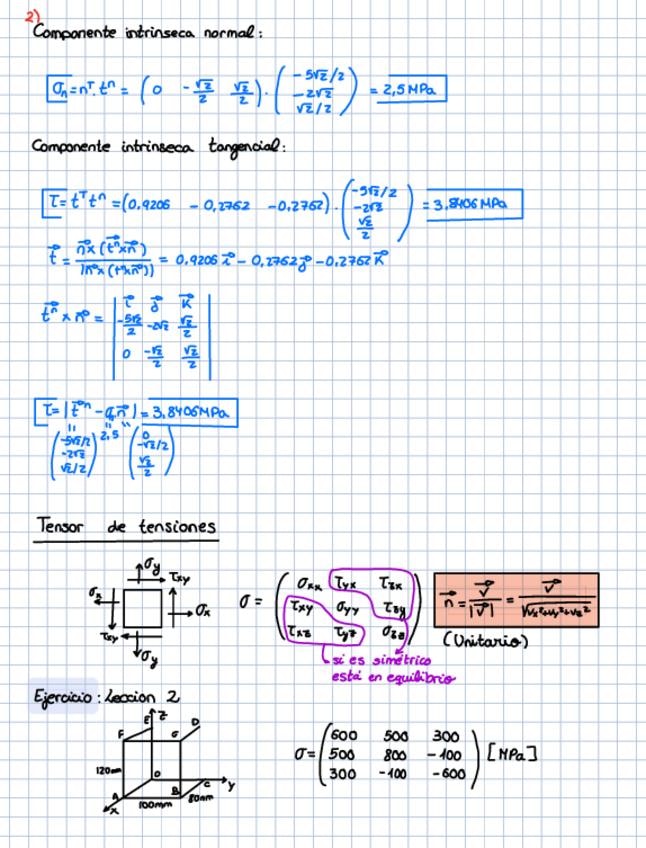 2)
Componente intrinseca normal:
σn = nᵀ·tⁿ = (0 -√2/2 √2/2)·(-5√2/2 -2√2 √2/2) = 2,5 MPa
Componente intrinseca tangencial:
τ = tᵀ tⁿ = (0,9206 -0,2762 -0,2762)·(-5√2/2 -2√2 √2/2) = 3,8406 MPa
t = n×(tⁿ×n)/|n×(tⁿ×n)| = 0,9206 i - 0,2762 j - 0,2762 k
tⁿ × n = | i j k
-5√2/2 -2√2 √2/2
0 -√2/2 √2/2 |
τ = |tⁿ - σn n| = 3,8406 MPa
(-5√2/2 -2√2 √2/2) 2,5 (0 -√2/2 √2/2)
Tensor de tensiones
σy
τxy
σx σx
τxy
σy
σ = (σxx τyx τzx
τxy σyy τzy
τxz τyz σzz)
n = v/|v| = v/√(vx²+vy²+vz²)
(Unitario)
si es simétrico
está en equilibrio
Ejercicio: Leccion 2
E z D
F G
120mm
O C y
A B
x 100mm 80mm
σ = (600 500 300
500 800 -100
300 -100 -600) [MPa]